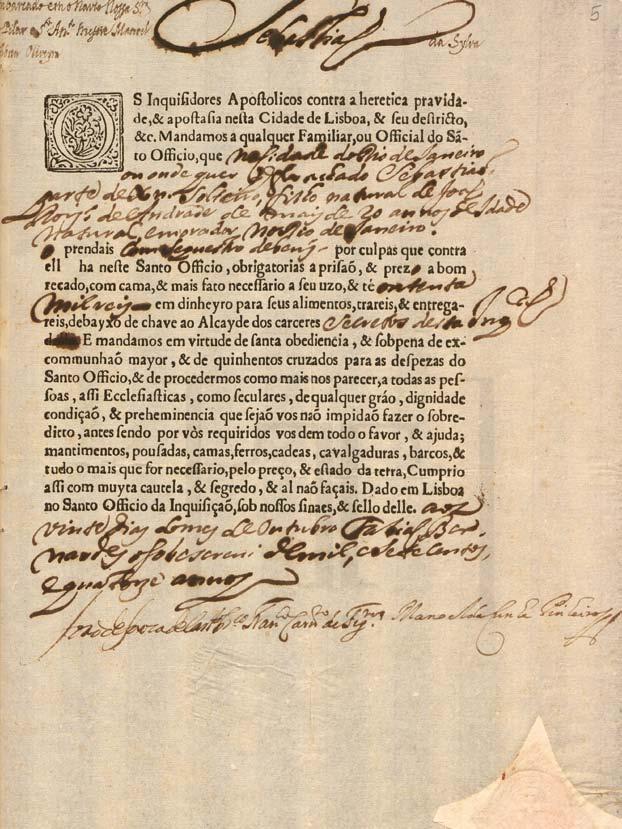 5
Nossa Srª
Pilar e Stº Antº Mestre Manoel
Sebastiaõ
da Sylva
OS Inquisidores Apostolicos contra a heretica pravida-
de, & apostasia nesta Cidade de Lisboa, & seu destricto,
&c. Mandamos a qualquer Familiar, ou Official do Sã-
to Officio, que na Cidade do Rio de Janeiro
ou onde quer q for achado Sebastiaõ
parte de x.n. solteiro, filho natural de Joseph
de Andrade de mais de 20 annos de Idade
natural, e morador, no Rio de Janeiro.
o prendais Com sequestro de bens por culpas que contra
ell ha neste Santo Officio, obrigatorias a prisaõ, & prezo a bom
recado, com cama, & mais fato necessario a seu uzo, & té oitenta
mil reis em dinheyro para seus alimentos, trareis, & entrega-
reis, debayxo de chave ao Alcayde dos carceres Secretos desta Inq
E mandamos em virtude de santa obediencia, & sobpena de ex-
communhaõ mayor, & de quinhentos cruzados para as despezas do
Santo Officio, & de procedermos como mais nos parecer, a todas as pes-
soas, assi Ecclesiasticas, como seculares, de qualquer gráo, dignidade
condiçaõ, & preheminencia que sejaõ vos naõ impidaõ fazer o sobre-
ditto, antes sendo por vòs requiridos vos dem todo o favor, & ajuda;
mantimentos, pousadas, camas, ferros, cadeas, cavalgaduras, barcos, &
tudo o mais que for necessario, pelo preço, & estado da terra, Cumprio
assi com muyta cautela, & segredo, & al naõ façais. Dado em Lisboa
no Santo Officio da Inquisiçaõ, sob nossos sinaes, & sello delle. aos
vinte dias do mes de Outubro Fabiaõ Ber-
nardes o sobescrevi de mil, e Setecentos,
e quatorze annos